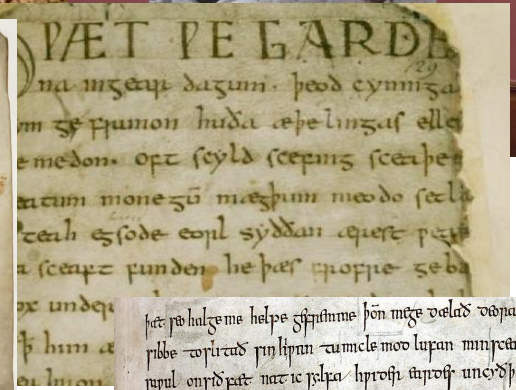 ǷÆT ǷE GARDE
na ingear dagum. þeod cyninga
ym ge frunon huða æþelingas elle
e medon. oft scyld scefing sceaþe
eatum monegū mægþum meodo setla
teah egsode eorl syððan ærest ƿear
a sceaft funden he þæs frofre geba
ox under
þ him æ
þæt seo halge me helpe gefremme þoñ mege dælað deora
sibbe toslitað sinhiƿan tu micle mod lufan min scea
saƿul onsiðfæt nat ic sylfa